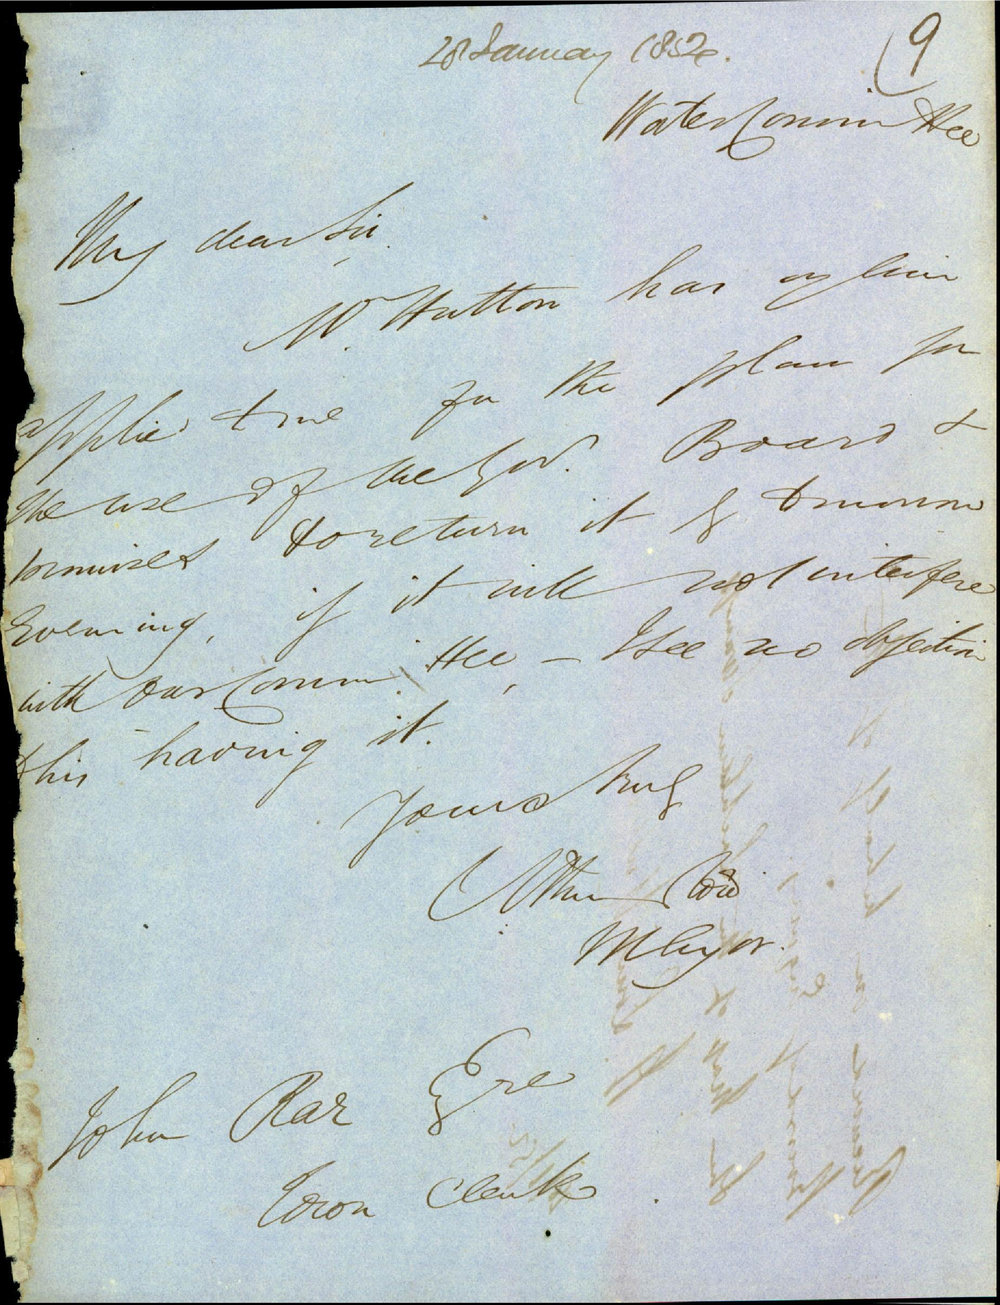 9
28 January 1852.
Water Committee
My dear Sir,
Mr. Hutton has again
applied to me for the plan for
the use of the Govt. Board &
promises to return it by tomorrow
Evening, if it will not interfere
with our Committee, – I see no objection
to his having it.
Yours truly
Mayor.
John Rae Esqre
Town Clerk